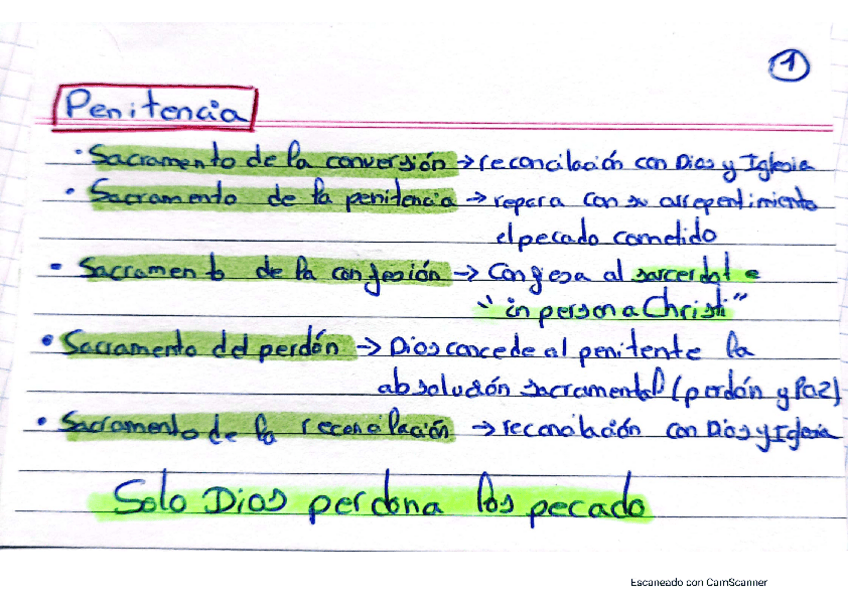 1
Penitencia
· Sacramento de la conversión → reconciliación con Dios y Iglesia
• Sacramento de la penitencia → repara con su arrepentimiento
el pecado cometido
• Sacramento de la confesión → Confiesa al sarcerdote
"in persona Christi"
• Sacramento del perdón → Dios concede al penitente la
absolución sacramental (perdón y Paz)
• Sacramento de la reconcilación → reconcilación con Dios y Iglesia
Solo Dios perdona los pecado
Escaneado con CamScanner